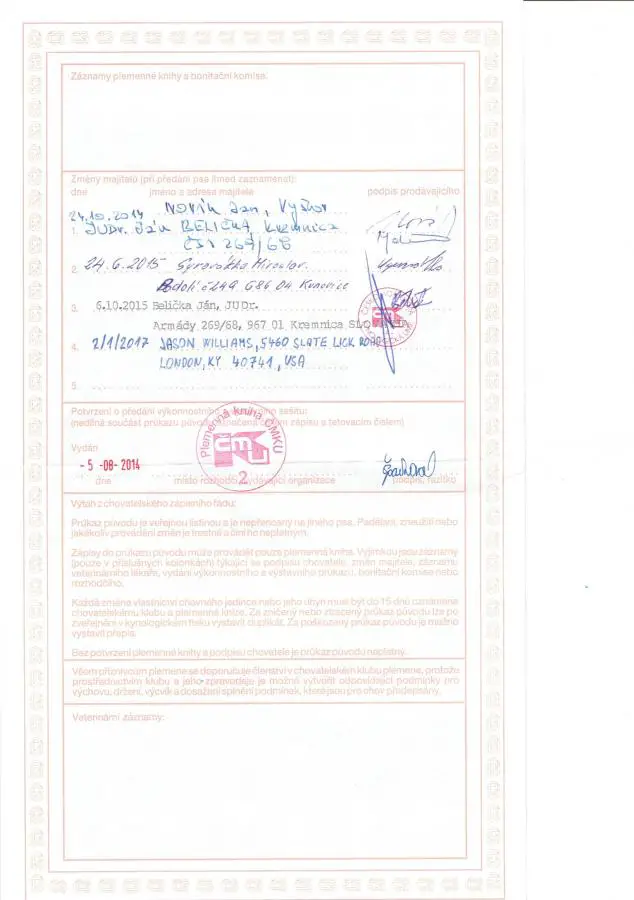 Záznamy plemenné knihy a bonitační komise:
Změny majitelů (při předání psa ihned zaznamenat):
dne jméno a adresa majitele podpis prodávajícího
24.10.2014 Jan,
1. JUDr. Ján BELIČKA, Kremnica
ČSA 269/68
2. 24.6.2015 Syrovátka Miroslav
686 04 Kunovice
3. 6.10.2015 Belička Ján, JUDr.
Armády 269/68, 967 01 Kremnica
4. 2/1/2017 JASON WILLIAMS, 5460 SLATE LICK ROAD
LONDON, KY 40741, USA
5.
Potvrzení o předání výkonnostního sešitu:
(nedílná součást průkazu původu číslem zápisu a tetovacím číslem)
Vydán
- 5 -08- 2014
Plemenná kniha ČMKU
2
dne místo vydávající organizace podpis, razítko
Výtah z chovatelského zápisního řádu:
Průkaz původu je veřejnou listinou a je nepřenosný na jiného psa. Padělání, zneužití nebo
jakékoliv provádění změn je trestné a činí neplatným.
Zápisy do průkazu původu může provádět pouze plemenná kniha. Výjimkou jsou záznamy
(pouze v příslušných kolonkách) týkající se podpisu chovatele, změn majitele, záznamu
veterinárního lékaře, vydání výkonnostního a výstavního průkazu, bonitační komise nebo
rozhodčího.
Každá změna vlastnictví chovného jedince nebo jeho úhyn musí být do 15 dnů oznámena
chovatelskému klubu a plemenné knize. Za zničený nebo ztracený průkaz původu lze po
zveřejnění v kynologickém tisku vystavit duplikát. Za poškozený průkaz původu je možno
vystavit přepis.
Bez potvrzení plemenné knihy a podpisu chovatele je průkaz původu neplatný.
Všem příznivcům plemene se doporučuje členství v chovatelském klubu plemene, protože
prostřednictvím klubu a jeho zpravodaje je možná vytvořit odpovídající podmínky pro
výchovu, držení, výcvik a dosažení splnění podmínek, které jsou pro chov předepsány.
Veterinární záznamy: